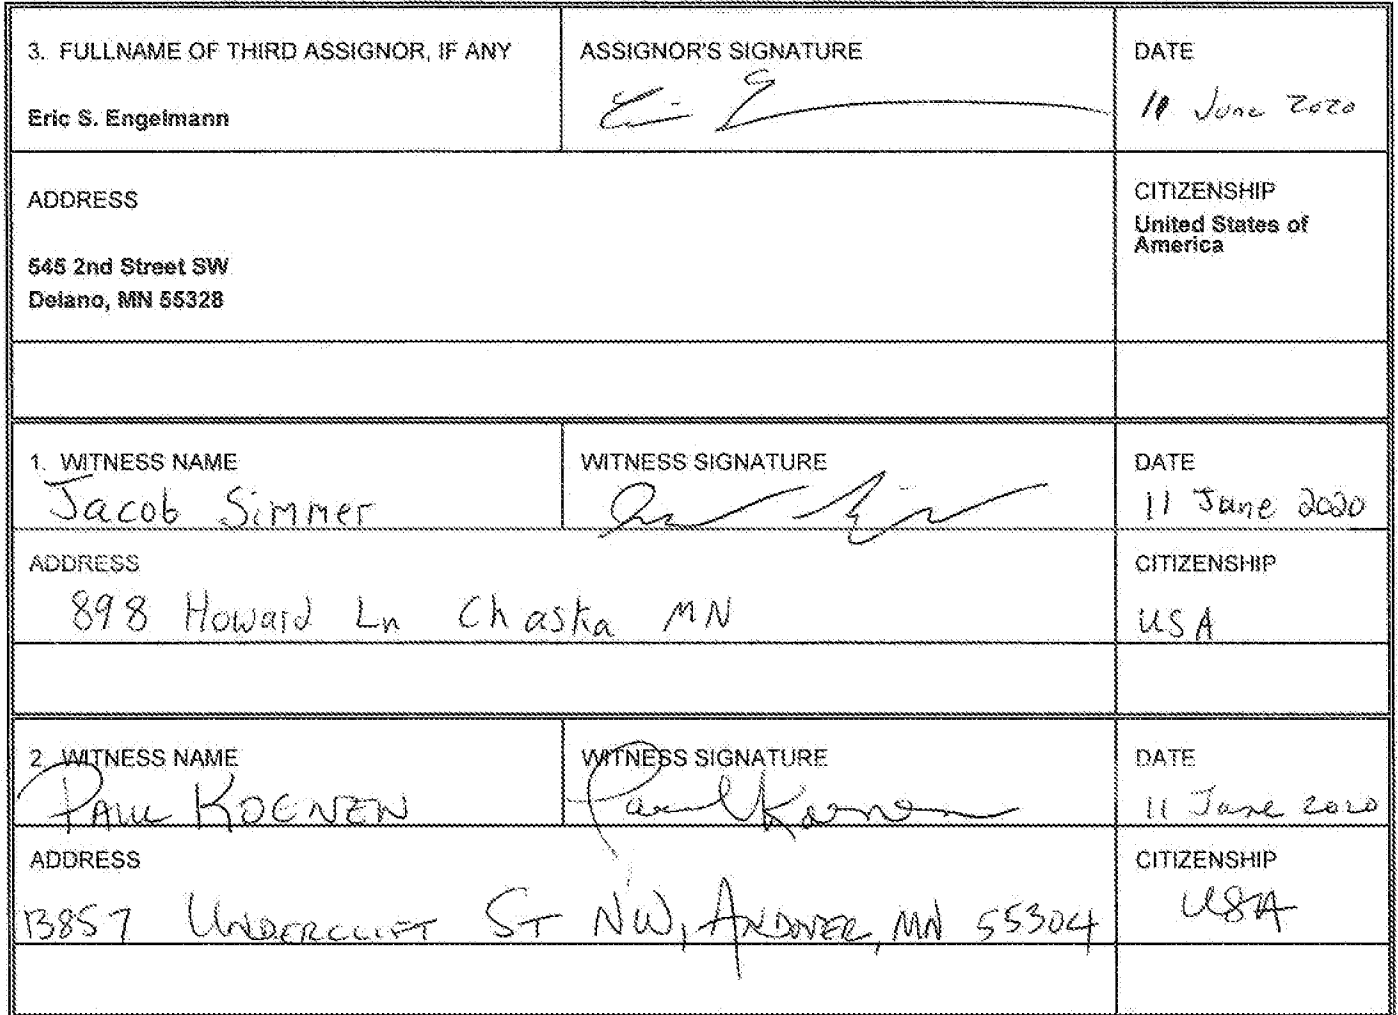 3. FULLNAME OF THIRD ASSIGNOR, IF ANY
Eric S. Engelmann
ASSIGNOR'S SIGNATURE
DATE
11 June 2020
ADDRESS
545 2nd Street SW
Delano, MN 55328
CITIZENSHIP
United States of
America
1. WITNESS NAME
Jacob Simmer
WITNESS SIGNATURE
DATE
11 June 2020
ADDRESS
898 Howard Ln Chaska MN
CITIZENSHIP
USA
2. WITNESS NAME
PAUL KOENEN
WITNESS SIGNATURE
Paul Koenen
DATE
11 June 2020
ADDRESS
13857 UNDERCLIFT ST NW, ANDOVER, MN 55304
CITIZENSHIP
USA